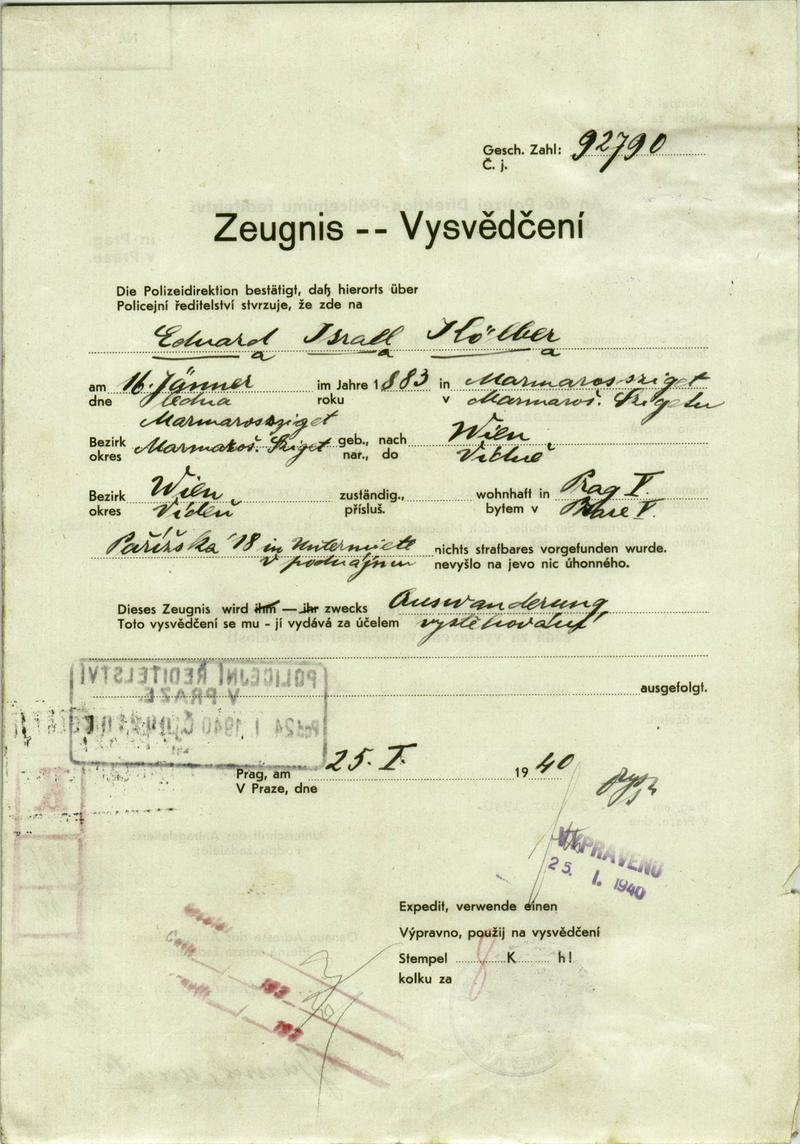 Gesch. Zahl: 92790
Č. j.
Zeugnis -- Vysvědčení
Die Polizeidirektion bestätigt, daß hierorts über
Policejní ředitelství stvrzuje, že zde na
Eduard Israel Kölber
am 16. Jänner im Jahre 1883 in Marmarossziget
dne ledna roku v Marmaroš. Szigetu
Marmarossziget
Bezirk geb., nach Wien
okres Marmaroš. Sziget nar., do Vídně
Bezirk Wien zuständig., wohnhaft in Prag V.
okres Vídeň přísluš. bytem v Praze V.
Pařížská 18 in Untermiete nichts strafbares vorgefunden wurde.
v podnájmu nevyšlo na jevo nic úhonného.
Dieses Zeugnis wird ihm — ihr zwecks Auswanderung
Toto vysvědčení se mu - jí vydává za účelem vystěhování
ausgefolgt.
POLICEJNÍ ŘEDITELSTVÍ
V PRAZE
24 I 1940
Prag, am 25. I. 1940
V Praze, dne
VYPRAVENO
25. I. 1940
Expedit, verwende einen
Výpravno, použij na vysvědčení
Stempel 8 K h!
kolku za
193
193